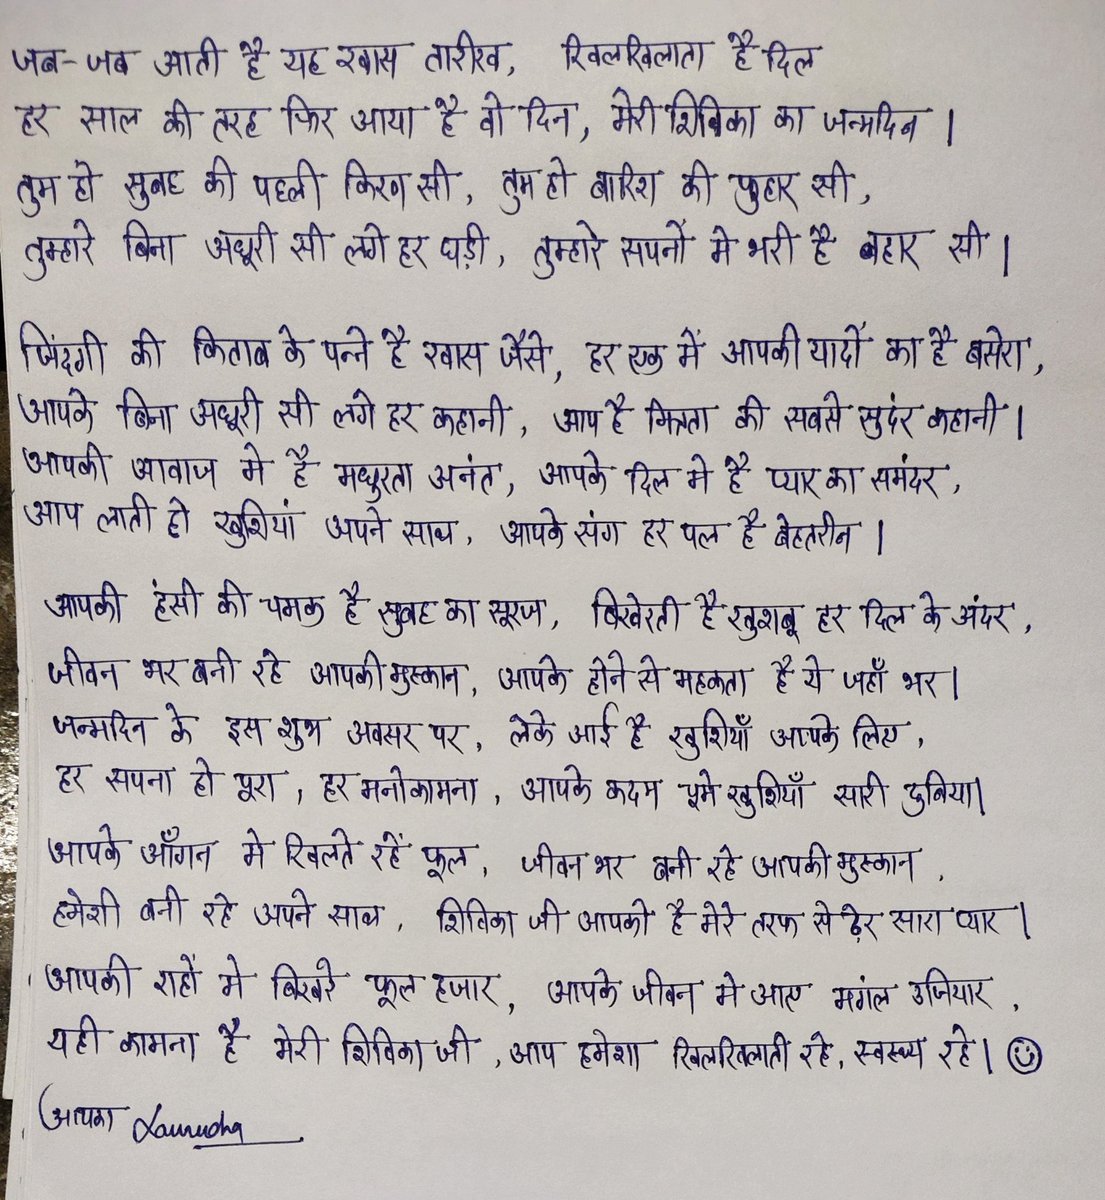 जब-जब आती है यह खास तारीख, खिलखिलाता है दिल
हर साल की तरह फिर आया है वो दिन, मेरी शिविका का जन्मदिन।
तुम हो सुबह की पहली किरण सी, तुम हो बारिश की फुहार सी,
तुम्हारे बिना अधूरी सी लगे हर घड़ी, तुम्हारे सपनों मे भरी है बहार सी।
जिंदगी की किताब के पन्ने है खास जैसे, हर एक में आपकी यादों का है बसेरा,
आपके बिना अधूरी सी लगे हर कहानी, आप है मित्रता की सबसे सुदंर कहानी।
आपकी आवाज मे है मधुरता अनंत, आपके दिल मे है प्यार का समंदर,
आप लाती हो खुशियां अपने साथ, आपके संग हर पल है बेहतरीन।
आपकी हंसी की चमक है सुबह का सूरज, बिखेरती है खुशबू हर दिल के अंदर,
जीवन भर बनी रहे आपकी मुस्कान, आपके होने से महकता है ये जहाँ भर।
जन्मदिन के इस शुभ अवसर पर, लेके आई है खुशियाँ आपके लिए,
हर सपना हो पूरा, हर मनोकामना, आपके कदम चूमे खुशियाँ सारी दुनिया।
आपके आँगन मे खिलते रहें फूल, जीवन भर बनी रहे आपकी मुस्कान,
हमेशी बनी रहे अपने साथ, शिविका जी आपको है मेरे तरफ से ढ़ेर सारा प्यार।
आपकी राहों मे बिखरे फूल हजार, आपके जीवन मे आए मगंल उजियार,
यही कामना है मेरी शिविका जी, आप हमेशा खिलखिलाती रहे, स्वस्थ्य रहे। ☺
आपका